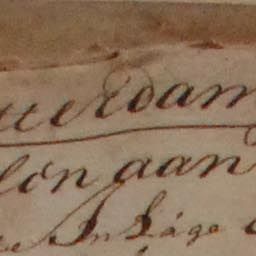 uerdam
lon aan
In Lage